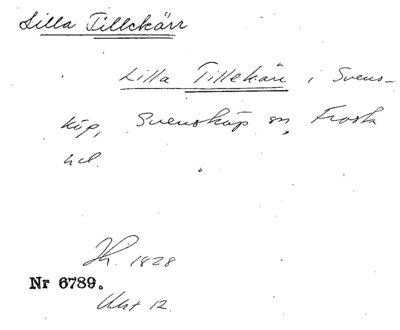 Lilla Tillekärr
Lilla Tillekärr i Svens-
köp, Svensköp sn, Frosta
hd.
Jh. 1828
Nr 6789.
Utst 12.